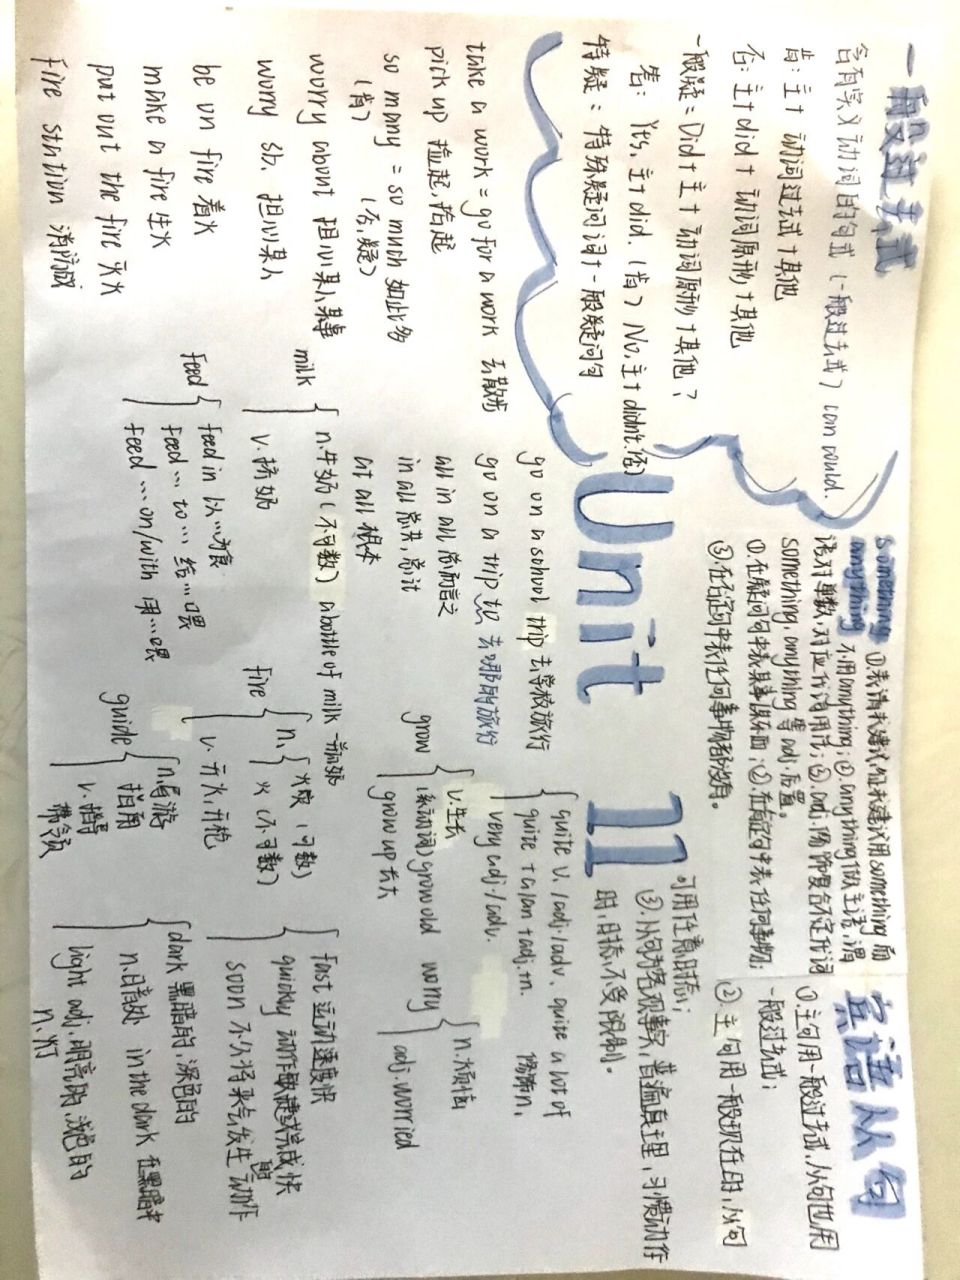 一般过去式
含有实义动词的句式(一般过去式) can could.
肯:主+ 动词过去式+其他
否:主+did+动词原形+其他
一般疑:Did+主+动词原形+其他?
答: Yes,主+did.(肯) No,主+didn't.(否)
特疑:特殊疑问词+一般疑问句
something
anything
①表请求建议,征求建议用something而
不用anything;②anything做主语,谓
语对单数,对应代词用it;③adj.修饰复合不定代词
something, anything 等adj.后置。
①.在疑问句中表某事/某东西;②.在肯定句中表任何事物;
③.在否定句中表任何事物都没有。
宾语从句
①.主句用一般过去式,从句也用
一般过去式;
②.主句用一般现在时,从句
可用任意时态;
③.从句为客观事实,普遍真理,习惯动作
时,时态不受限制。
Unit 11
take a work = go for a work 去散步
pick up 捡起,拾起
so many = so much 如此多
(肯) (否,疑)
worry about 担心某人某事
worry sb. 担心某人
be on fire 着火
make a fire 生火
put out the fire 灭火
fire station 消防
go on a school trip 去学校旅行
go on a trip to 去哪的旅行
all in all 总而言之
in all 总共,总计
at all 根本
milk
n.牛奶(不可数) a bottle of milk 一瓶奶
v.挤奶
feed
feed in 以…为食
feed … to … 给…喂
feed … on/with 用…喂
quite v./adj./adv. quite a lot of
quite + a/an + adj.+n. 修饰n.
very adj./adv.
grow
v.生长
(系动词) grow old
grow up 长大
worry
n.
adj. worried
fire
n.
火灾(可数)
火(不可数)
v.开火,开枪
guide
n.导游
指南
v.指导
带领
fast 运动速度快
quickly 动作敏捷或完成快
soon 不久将来会发生的动作
dark 黑暗的,深色的
n.暗处 in the dark 在黑暗中
light adj.明亮的,浅色的
n.灯